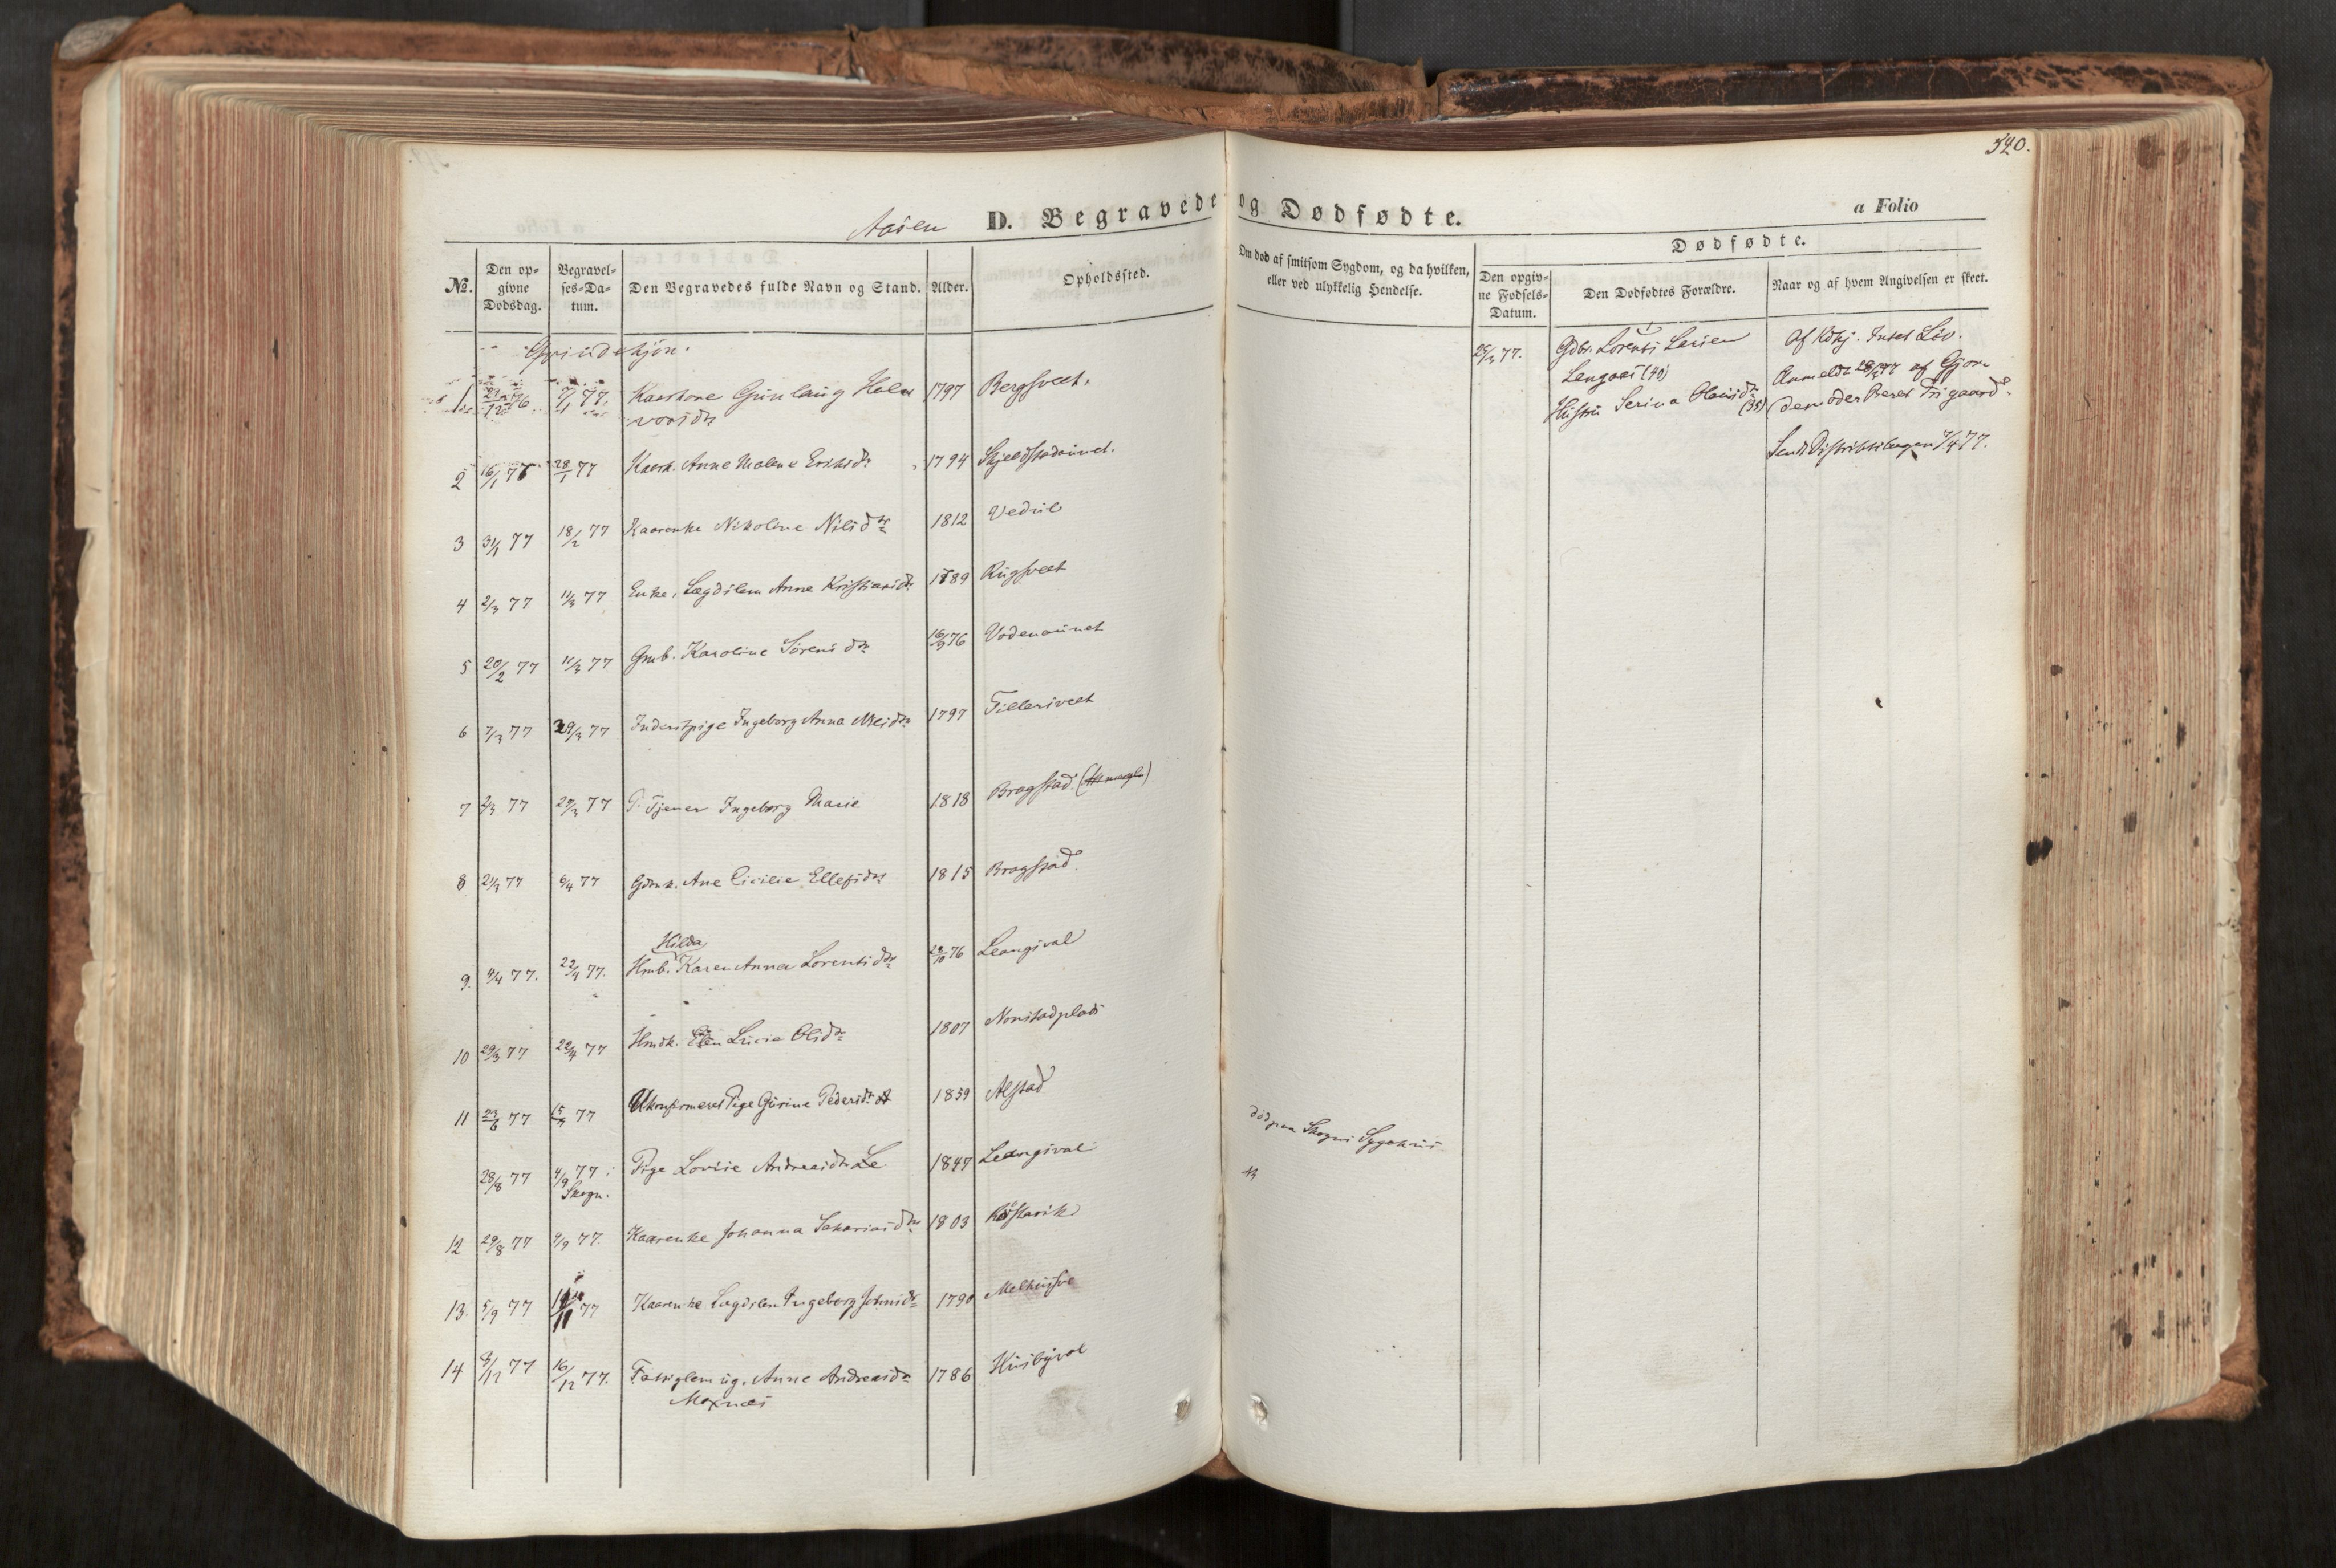 540.
Aasen D. Begravede og Dødfødte. a Folio
No. Den opgivne Dødsdag. Begravelses-Datum. Den Begravedes fulde Navn og Stand. Alder. Opholdssted. Om død af smitsom Sygdom, og da hvilken, eller ved ulykkelig Hendelse. Dødfødte. Den opgivne Fødsels-Datum. Den Dødfødtes Forældre. Naar og af hvem Angivelsen er skeet.
Qvindekjøn.
1 29/12 76 7/1 77. Kaarkone Gunlaug Halvorsdr 1797 Bergsveet.
2 16/1 77 28/1 77 Kaark. Anne Malene Eriksdr 1794 Skjelstadaunet.
3 31/1 77 18/2 77 Kaarenke Nikoline Nilsdr 1812 Vedul
4 2/3 77 11/3 77 Enke, Lægdslem Anne Kristiansdr 1789 Rugsveet
5 20/2 77 11/3 77 Gmb. Karoline Sørensdr 16/9 76 Vodenaunet
6 7/3 77 29/3 77 Inderstpige Ingeborg Anna Nilsdr 1797 Tillersveet
7 2/3 77 29/3 77 Tjener Ingeborg Marie 1818 Bragstad.
8 21/3 77 6/4 77 Gdmk. Ane Cicilie Ellefsdr 1815 Bragstad.
9. 4/4 77. 22/4 77. Hmb. Hilda Karen Anna Lorentsdr 28/10 76 Leangsval
10 29/3 77 22/4 77 Hmdk. Elen Lucie Olsdr 1807 Norstadplads
11 23/6 77 15/7 77 Ukonfirmeret Pige Gurine Pedersdr 1859 Alstad
28/8 77 4/9 77 i Skogn. Pige Lovise Andreasdr Le 1847 Leangsval død paa Skogns Sygehus
12 29/8 77 9/9 77. Kaarenke Johanna Sakariasdr 1803
13. 5/9 77 77 Kaarenke Lægdslem Ingeborg Johnsdr 1790
14 9/12 77 16/12 77. Fattiglem ug. Anne Andreasdr 1786 Husbyval
Moxnæs
25/3 77. Gdbr. Lorents Larsen
Lengæs (40)
Hustru Serina Olausdr (35)
Af Kdkj. Intet Liv.
Anmeldt 28/3 77 af Gjordemoder Beret Trigaard.
Sendt Distriktslægen 7/4 77.